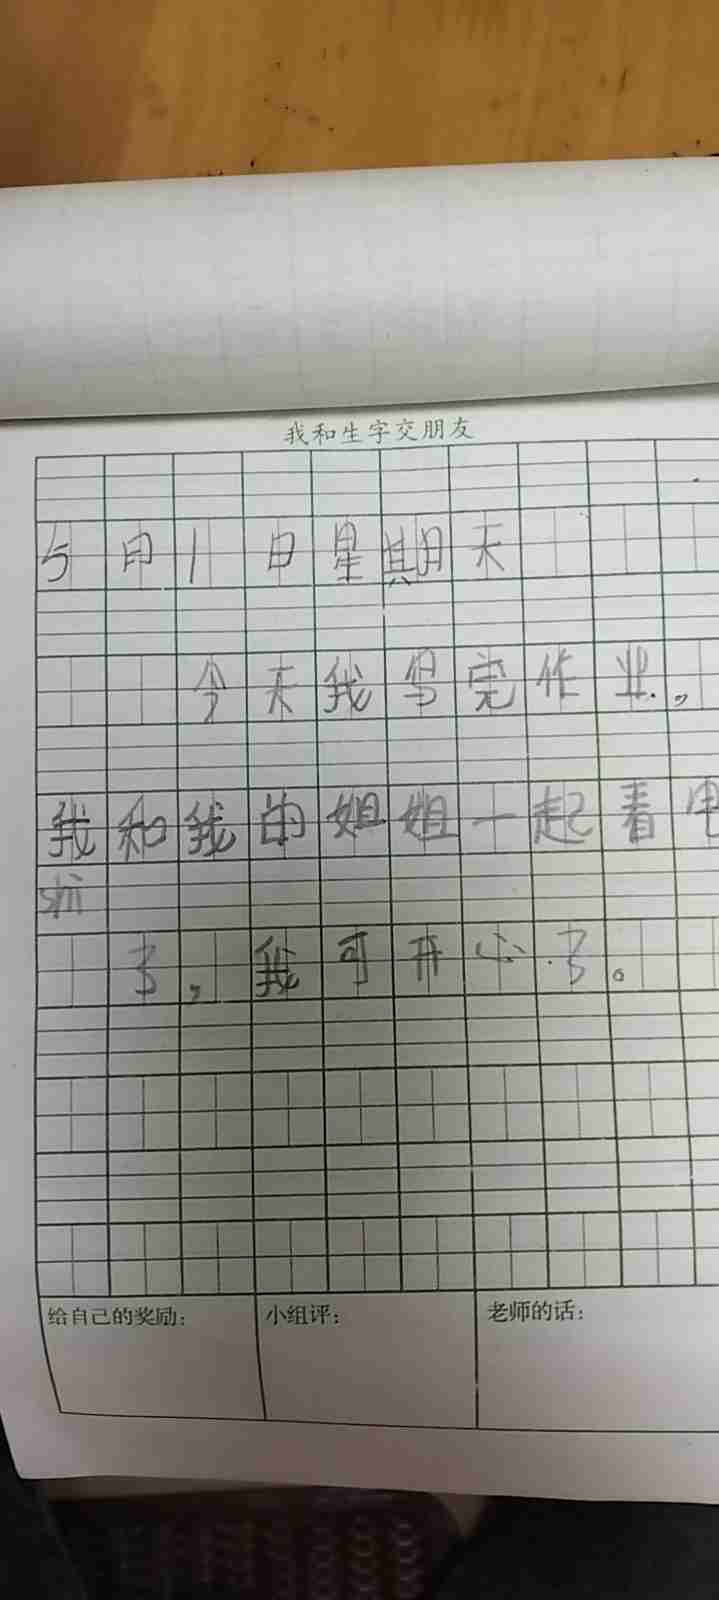 我和生字交朋友
5月1日星期天
今天我写完作业，
我和我的姐姐一起看电
shì
了，我可开心了。
给自己的奖励：
小组评：
老师的话：